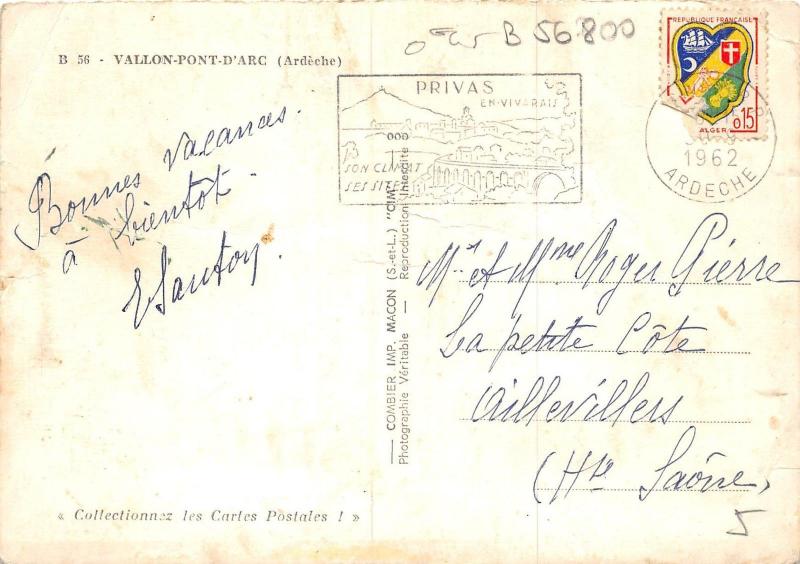 B 56 - VALLON-PONT-D'ARC (Ardèche)
B 56800
RÉPUBLIQUE FRANÇAISE
0,15
ALGER
PRIVAS
EN-VIVARAIS
SON CLIMAT
SES SITES
1962
ARDECHE
Bonnes vacances.
à bientôt.
COMBIER IMP. MACON (S.-et-L.) "CIM"
Photographie Véritable — Reproduction Interdite
Mr et Mme Roger Pierre
La petite Côte
Aillevillers
(Hte Saône)
« Collectionnez les Cartes Postales ! »
5